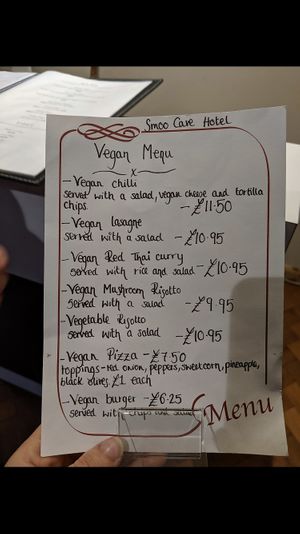 Smoo Cave Hotel
Vegan Menu
x
- Vegan chilli
served with a salad, vegan cheese and tortilla
chips. - £11.50
- Vegan lasagne
served with a salad - £10.95
- Vegan Red Thai curry
served with rice and salad - £10.95
- Vegan Mushroom Risotto
served with a salad - £9.95
- Vegetable Risotto
served with a salad - £10.95
- Vegan Pizza - £7.50
toppings - Red onion, peppers, sweetcorn, pineapple,
black olives. £1 each
- Vegan burger - £6.25
served with chips and salad
Menu